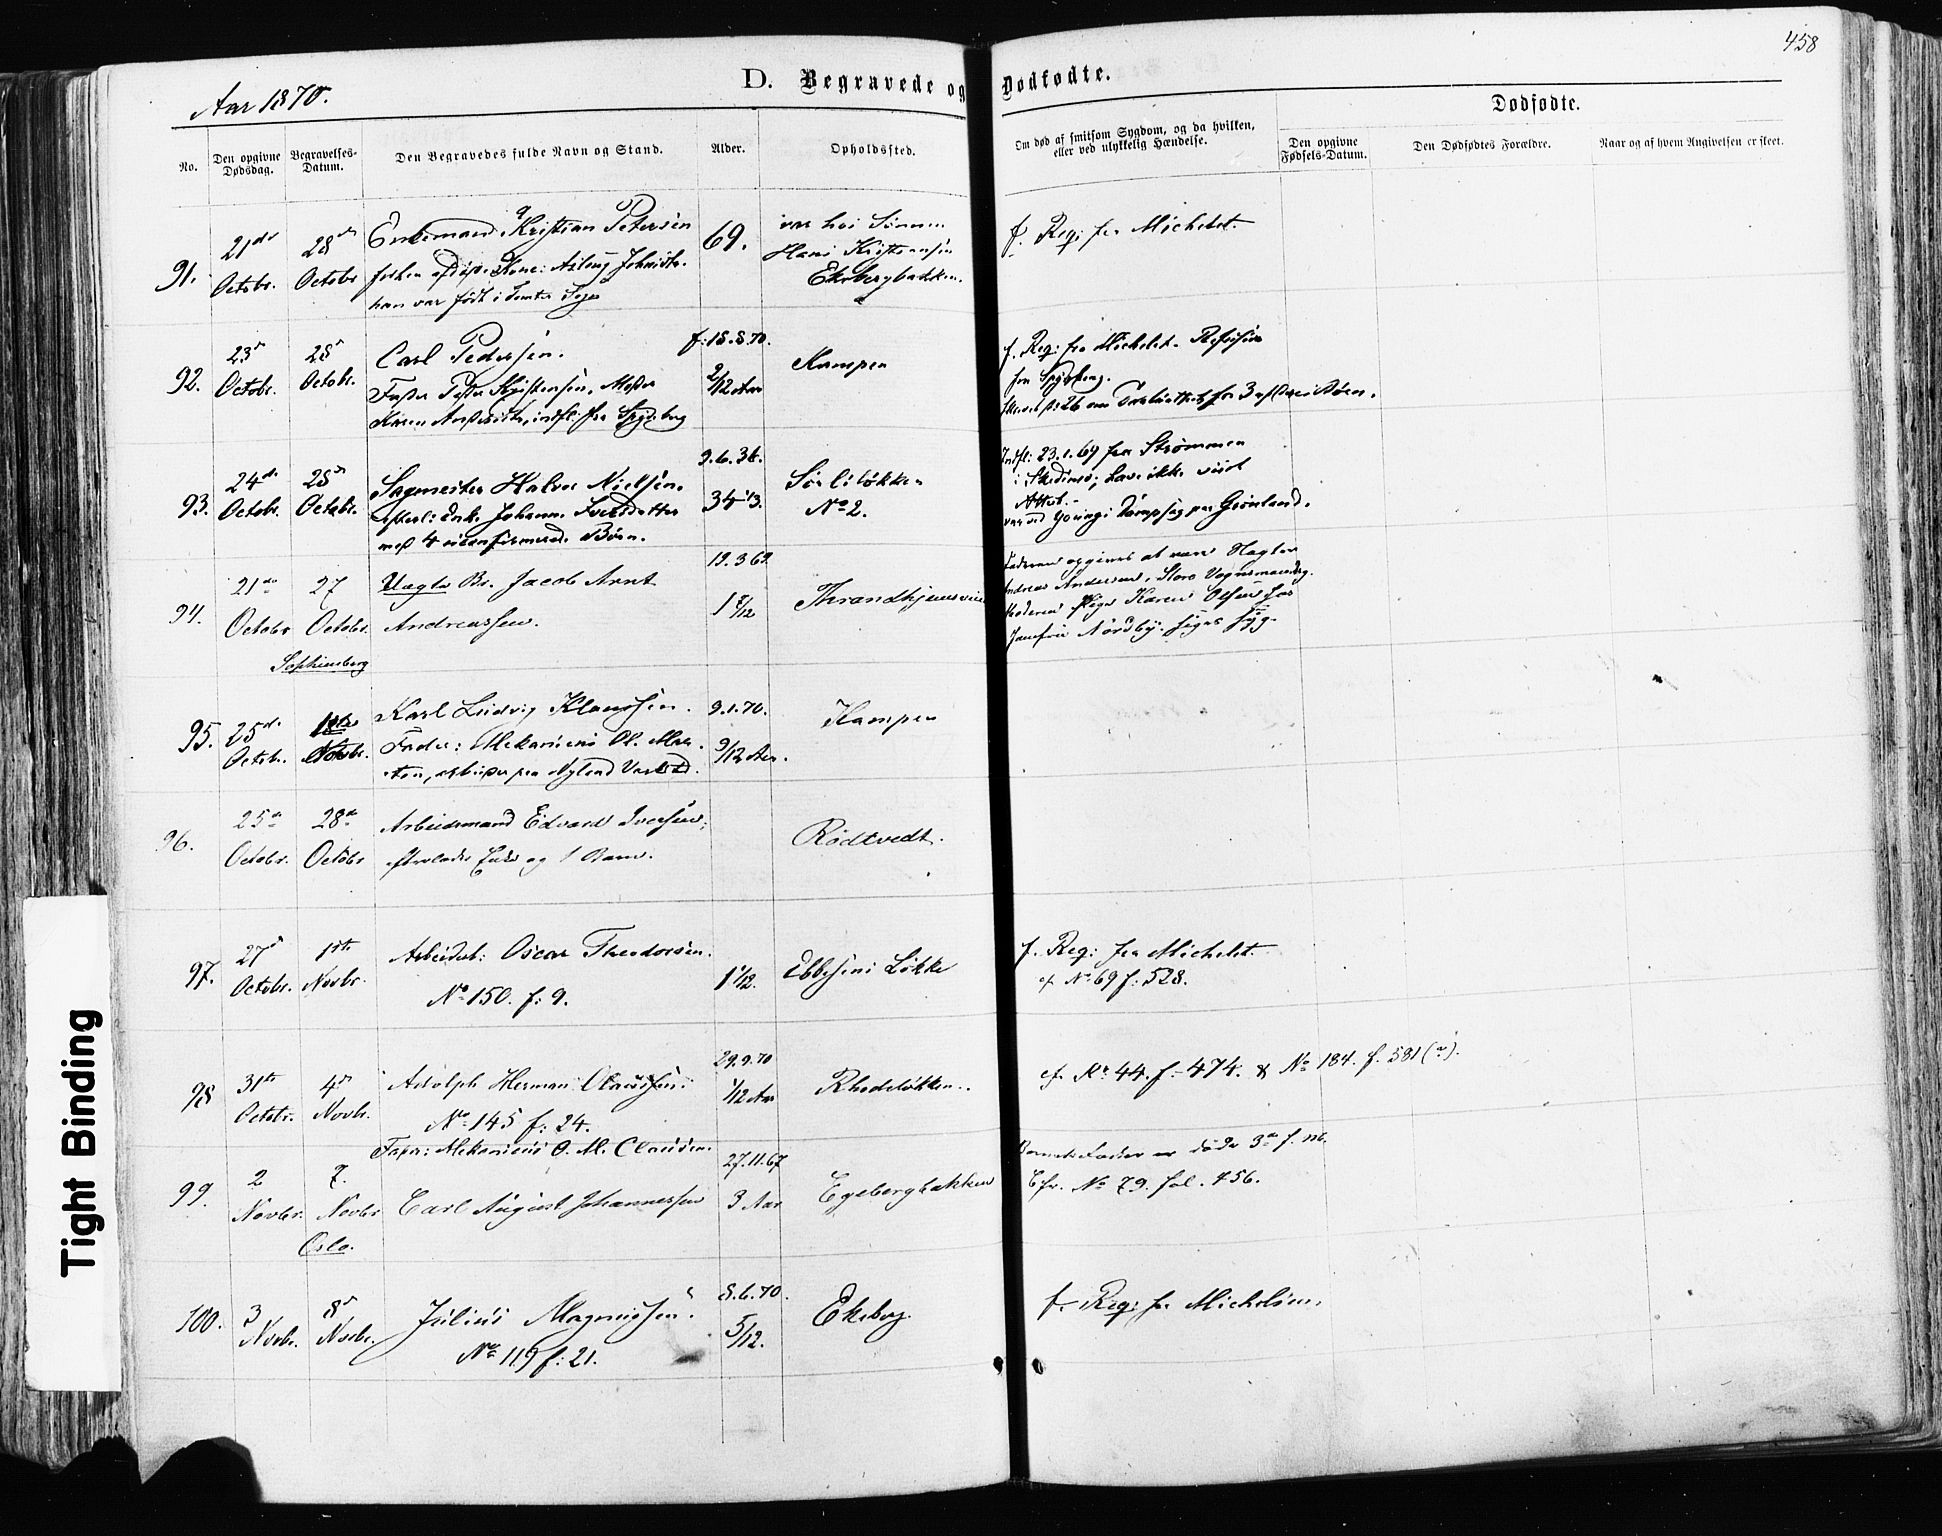 458
Aar 1870.
D. Begravede og Dødfødte.
Dødfødte.
No.
Den opgivne Dødsdag.
Begravelses-Datum.
Den Begravedes fulde Navn og Stand.
Alder.
Opholdssted.
Om død af smitsom Sygdom, og da hvilken,
eller ved ulykkelig Hændelse.
Den opgivne Fødsels-Datum.
Den Dødfødtes Forældre.
Naar og af hvem Angivelsen er skeet.
91.
21de Octobr.
28de Octobr
Enkemand Kristian Petersen
han var født i
69.
var hos Sønnen
Hans Kristiansen
Ekebergbakken.
f. Reg: fra Michelet.
92.
23d Octobr.
28d Octobr.
Carl Pedersen.
Fader Peder Kristensen, Moder
Karen indfl: fra Spydeberg
f: 18.8.70.
2/12 Aar
Kampen
f. Reg: fra Michelet.
fra Spydeberg.
93.
24de Octobr.
28de Octobr.
Sagmester Halvor Nielsen.
efterl: Enke Johanne Iversdatter
med 4 uconfirmerede Børn.
9.6.36.
34 1/3.
Sørliløkken
No 2.
Indfl: 23.1.69 fra Strømmen
i Skedsmo; har ikke viist
Attest.
Dampsag paa Grønland.
94.
21de Octobr
27 Octobr.
Sophienberg
Uægte Br. Jacob Arnt
Andreassen.
19.3.69.
1 7/12
Thrandhjemsveien
Faderen opgives at være
Andreas Andersen, Store Vognmandsg.
Moderen Pige Karen Olsen hos
Jomfru Nordby. siges syg.
95.
25de Octobr.
1ste Novbr.
Karl Ludvig Klaussen.
Fader: Mekanicus Ol. Mar-
ten, arbeider paa Nylend Værksted.
9.1.70.
9/12 Aar.
Kampen
96.
25de Octobr.
28de Octobr
Arbeidsmand Edvard Iversen;
efterlader Enke og 1 Barn.
Rødtvedt.
97.
27d Octobr.
1ste Novbr.
Arbeidsb: Oscar Theodorsen.
No 150. f: 9.
1 1/12.
Ebbesens Løkke
f. Reg: fra Michelet.
cf. No 69 f: 528.
98
31te Octobr.
4d Novbr.
Adolph Herman Claussen.
No 145 f: 24.
Fader: Mekanicus O. M. Clausen.
29.9.70
1/12 Aar
Rhodeløkken.
cf. Nr. 44. f. 474. & No 184. f. 581 (a).
99.
2 Novbr.
7. Novbr
Oslo.
Carl August Johannessen
27.11.67
3 Aar
Egebergbakken
Barnets Fader er døde 3de f. M.
Cfr. No 79. fol. 456.
100.
3 Novbr.
8d Novbr.
Julius Magnussen.
No 119 f: 21.
8.6.70.
5/12.
Ekeberg.
f. Reg: fra Michelsen.
Tight Binding